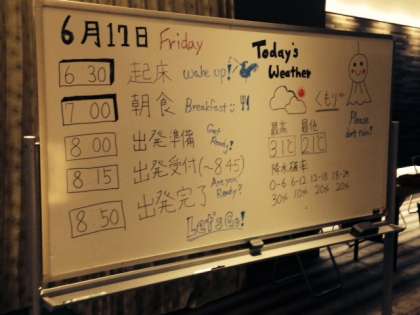 6月17日 Friday
6 30 起床 wake up!
7 00 朝食 Breakfast
8 00 出発準備 Get Ready!
8 15 出発受付(〜8:45)
Are you Ready?
8 50 出発完了
Let's Go!
Today's Weather
くもり
最高 最低
31℃ 21℃
降水確率
0-6 6-12 12-18 18-24
30% 10% 20% 20%
Please don't rain!